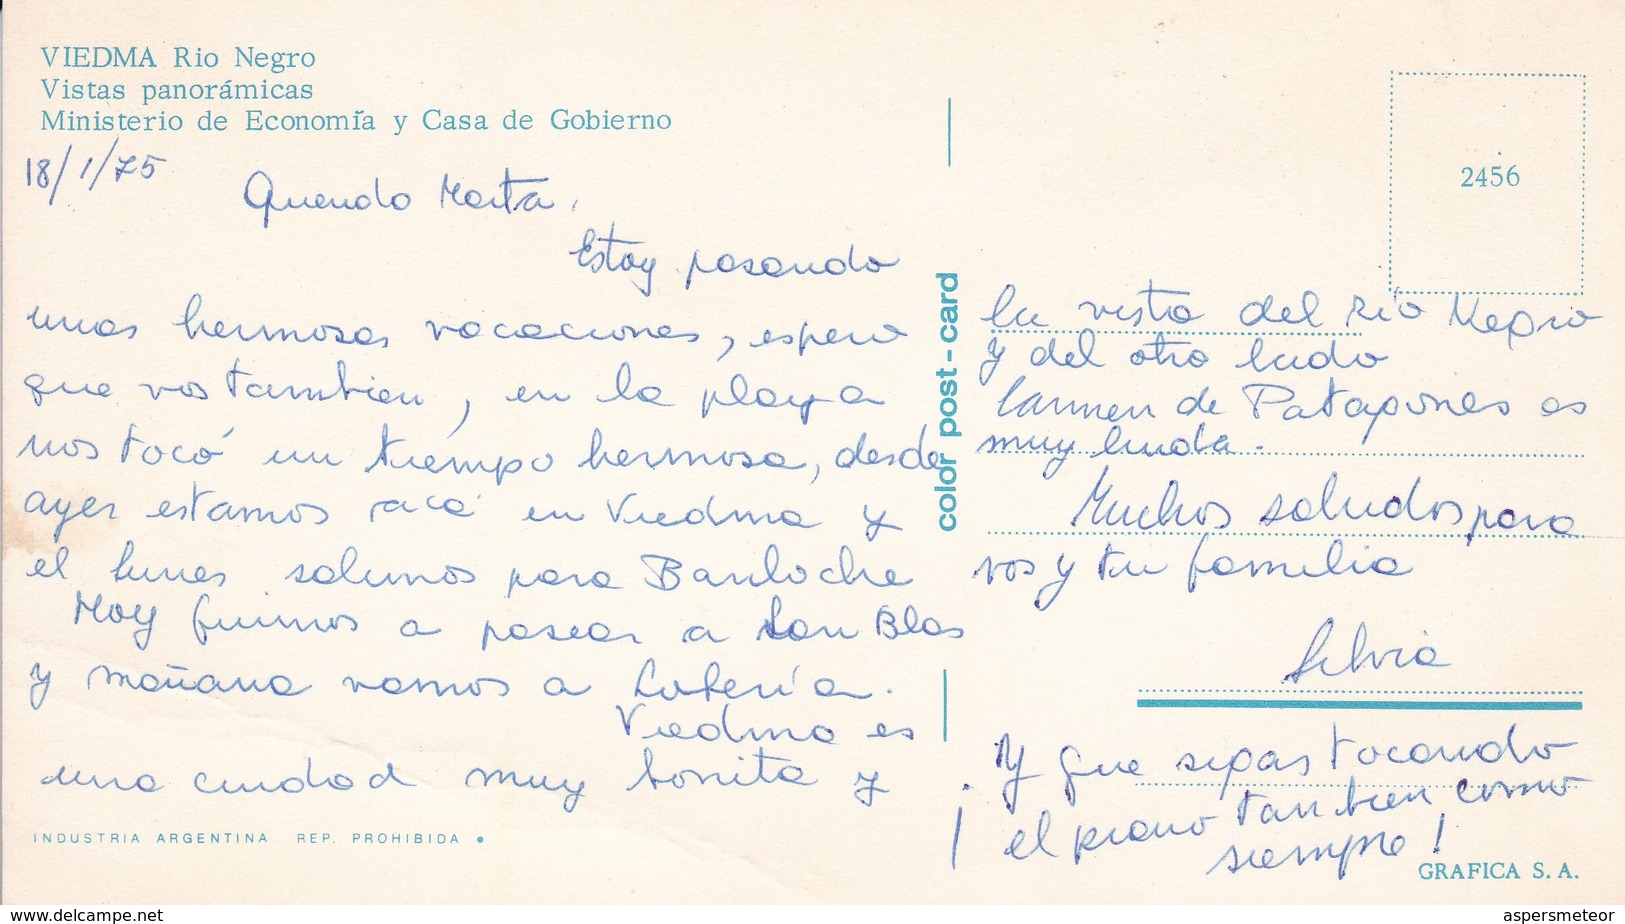 VIEDMA Rio Negro
Vistas panorámicas
Ministerio de Economía y Casa de Gobierno
18/1/75
Querida Marta,
Estoy pasando
unas hermosas vacaciones, espero
que vos tambien, en la playa
nos tocó un tiempo hermoso, desde
ayer estamos acá en Viedma y
el lunes salimos para Bariloche
Hoy fuimos a pasear a San Blas
y mañana vamos a Lobería.
Viedma es
una ciudad muy bonita y
la vista del Río Negro
y del otro lado
Carmen de Patagones es
muy linda.
Muchos saludos para
vos y tu familia
Silvia
¡Y que sigas tocando
el piano tan bien como
siempre!
color post-card
2456
INDUSTRIA ARGENTINA REP. PROHIBIDA
GRAFICA S. A.
www.delcampe.net
aspersmeteor